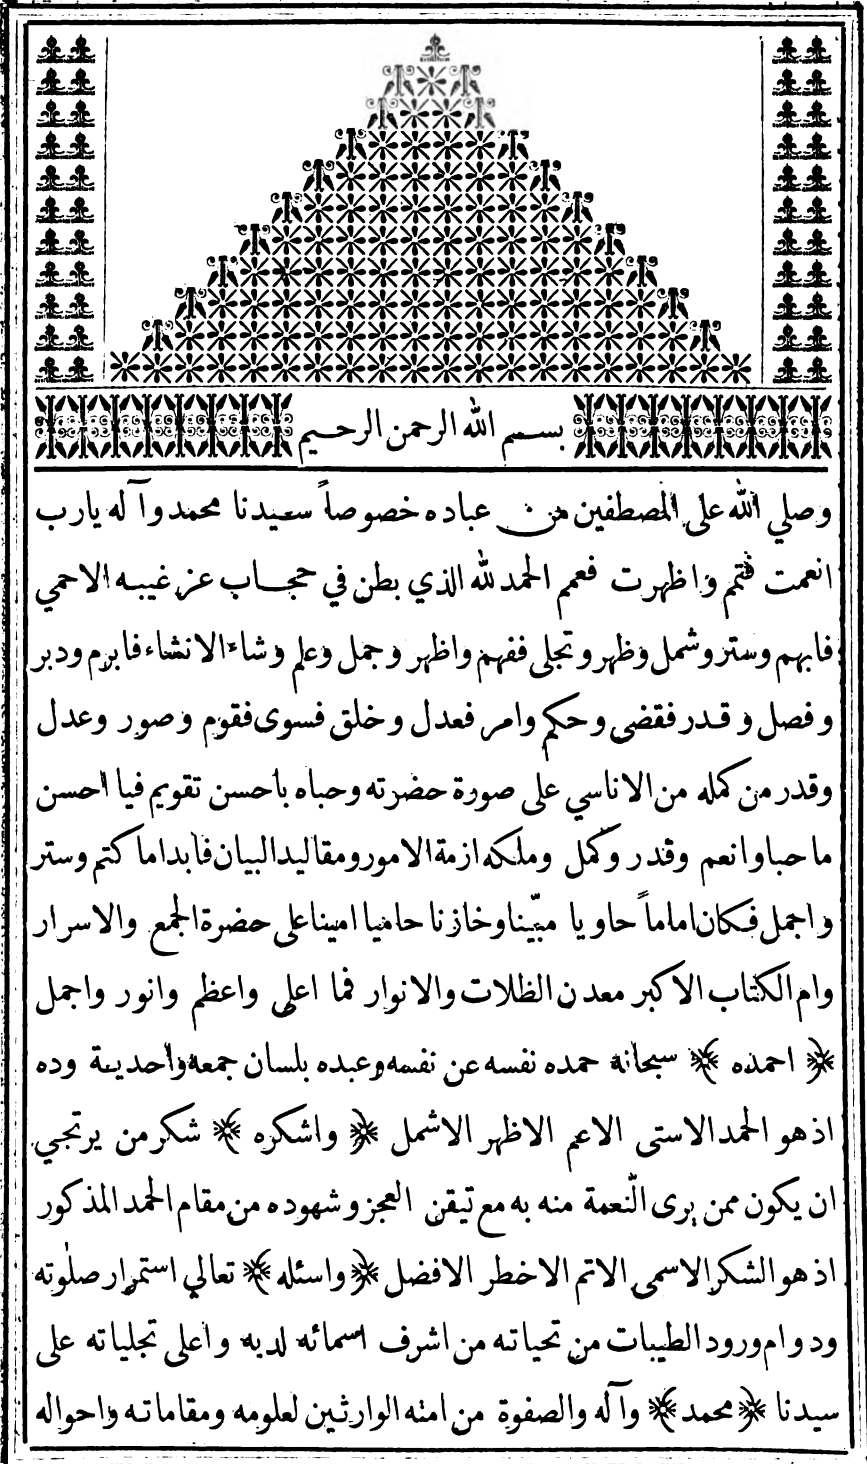 بسم الله الرحمن الرحيم
وصلي الله على المصطفين من عباده خصوصاً سيدنا محمد وآله يارب
انعمت فتمم واظهرت فعمم الحمد لله الذي بطن في حجاب عز غيبه الاحمي
فابهم وستر وشمل وظهر وتجلى ففهم واظهر وجمل وعلم وشاء الانشاء فابرم ودبر
وفصل وقدر فقضى وحكم وامر فعدل وخلق فسوى فقوم وصور وعدل
وقدر من كمله من الاناسي على صورة حضرته وحباه باحسن تقويم فيا احسن
ما حبا وانعم وقدر وكمل وملكه ازمة الامور ومقاليد البيان فابدا ما كتم وستر
واجمل فكان اماماً حاويا مبّينا وخازنا حاميا امينا على حضرة الجمع والاسرار
وام الكتاب الاكبر معدن الظلات والانوار فما اعلى واعظم وانور واجمل
﴿ احمده ﴾ سبحانه حمده نفسه عن نفسه وعبده بلسان جمعه واحدية وده
اذ هو الحمد الاسنى الاعم الاظهر الاشمل ﴿ واشكره ﴾ شكر من يرتجي
ان يكون ممن يرى النّعمة منه به مع تيقن العجز وشهوده من مقام الحمد المذكور
اذ هو الشكر الاسمى الاتم الاخطر الافضل ﴿ واسئله ﴾ تعالي استمرار صلوته
ودوام ورود الطيبات من تحياته من اشرف اسمائه لديه واعلى تجلياته على
سيدنا ﴿ محمد ﴾ وآله والصفوة من امته الوارثين لعلومه ومقاماته واحواله